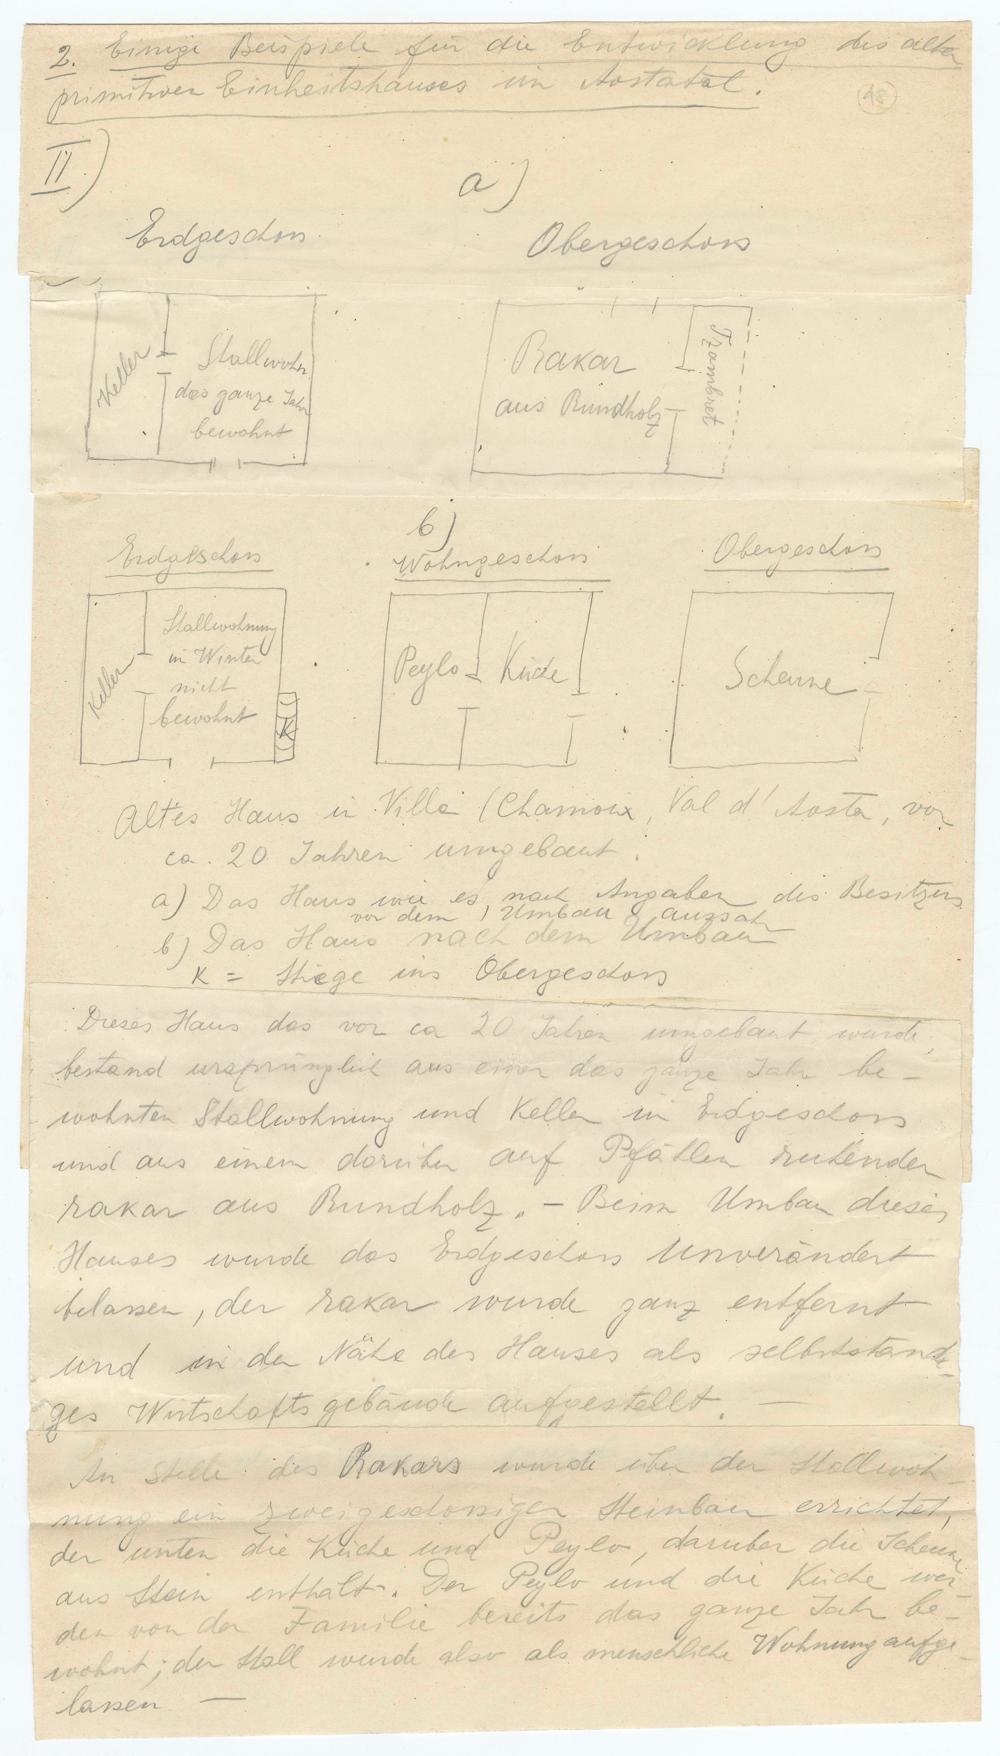 2. Einige Beispiele für die Entwicklung des alten
primitiven Einheitshauses im Aostatal.
48
II)
a)
Erdgeschoss
Obergeschoss
Keller
Stallwohn.
das ganze Jahr
bewohnt
Rakar
aus Rundholz
Trambret
b)
Erdgeschoss
Wohngeschoss
Obergeschoss
Keller
Stallwohnung
im Winter
nicht
bewohnt
K
Peylo
Küche
Scheune
Altes Haus in Villa (Chamoix, Val d'Aosta, vor
ca. 20 Jahren umgebaut.
a) Das Haus wie es nach Angaben des Besitzers
vor dem Umbau aussah
b) Das Haus nach dem Umbau
K = Stiege ins Obergeschoss
Dieses Haus das vor ca 20 Jahren umgebaut wurde,
bestand ursprünglich aus einer das ganze Jahr be-
wohnten Stallwohnung und Keller im Erdgeschoss
und aus einem darüber auf Pfählen ruhenden
rakar aus Rundholz. – Beim Umbau dieses
Hauses wurde das Erdgeschoss unverändert
belassen, der rakar wurde ganz entfernt
und in der Nähe des Hauses als selbstständi-
ges Wirtschaftsgebäude aufgestellt. —
An Stelle des Rakars wurde über der Stallwoh-
nung ein zweigeschossiger Steinbau errichtet,
der unten die Küche und Peylo, darüber die Scheune
aus Stein enthält. Der Peylo und die Küche wer-
den von der Familie bereits das ganze Jahr be-
wohnt; der Stall wurde also als menschliche Wohnung aufge-
lassen —